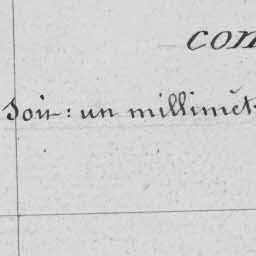 con
Soit : un millimèt